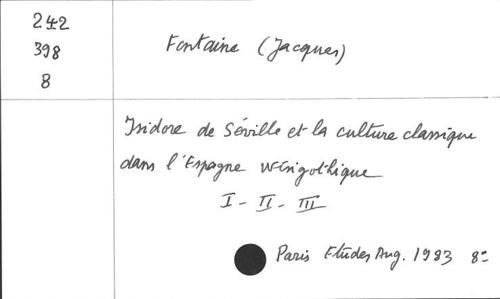 242
398
8
Fontaine (Jacques)
Isidore de Séville et la culture classique
dans l'Espagne wisigothique
I - II - III
Paris Etudes Aug. 1983 8º